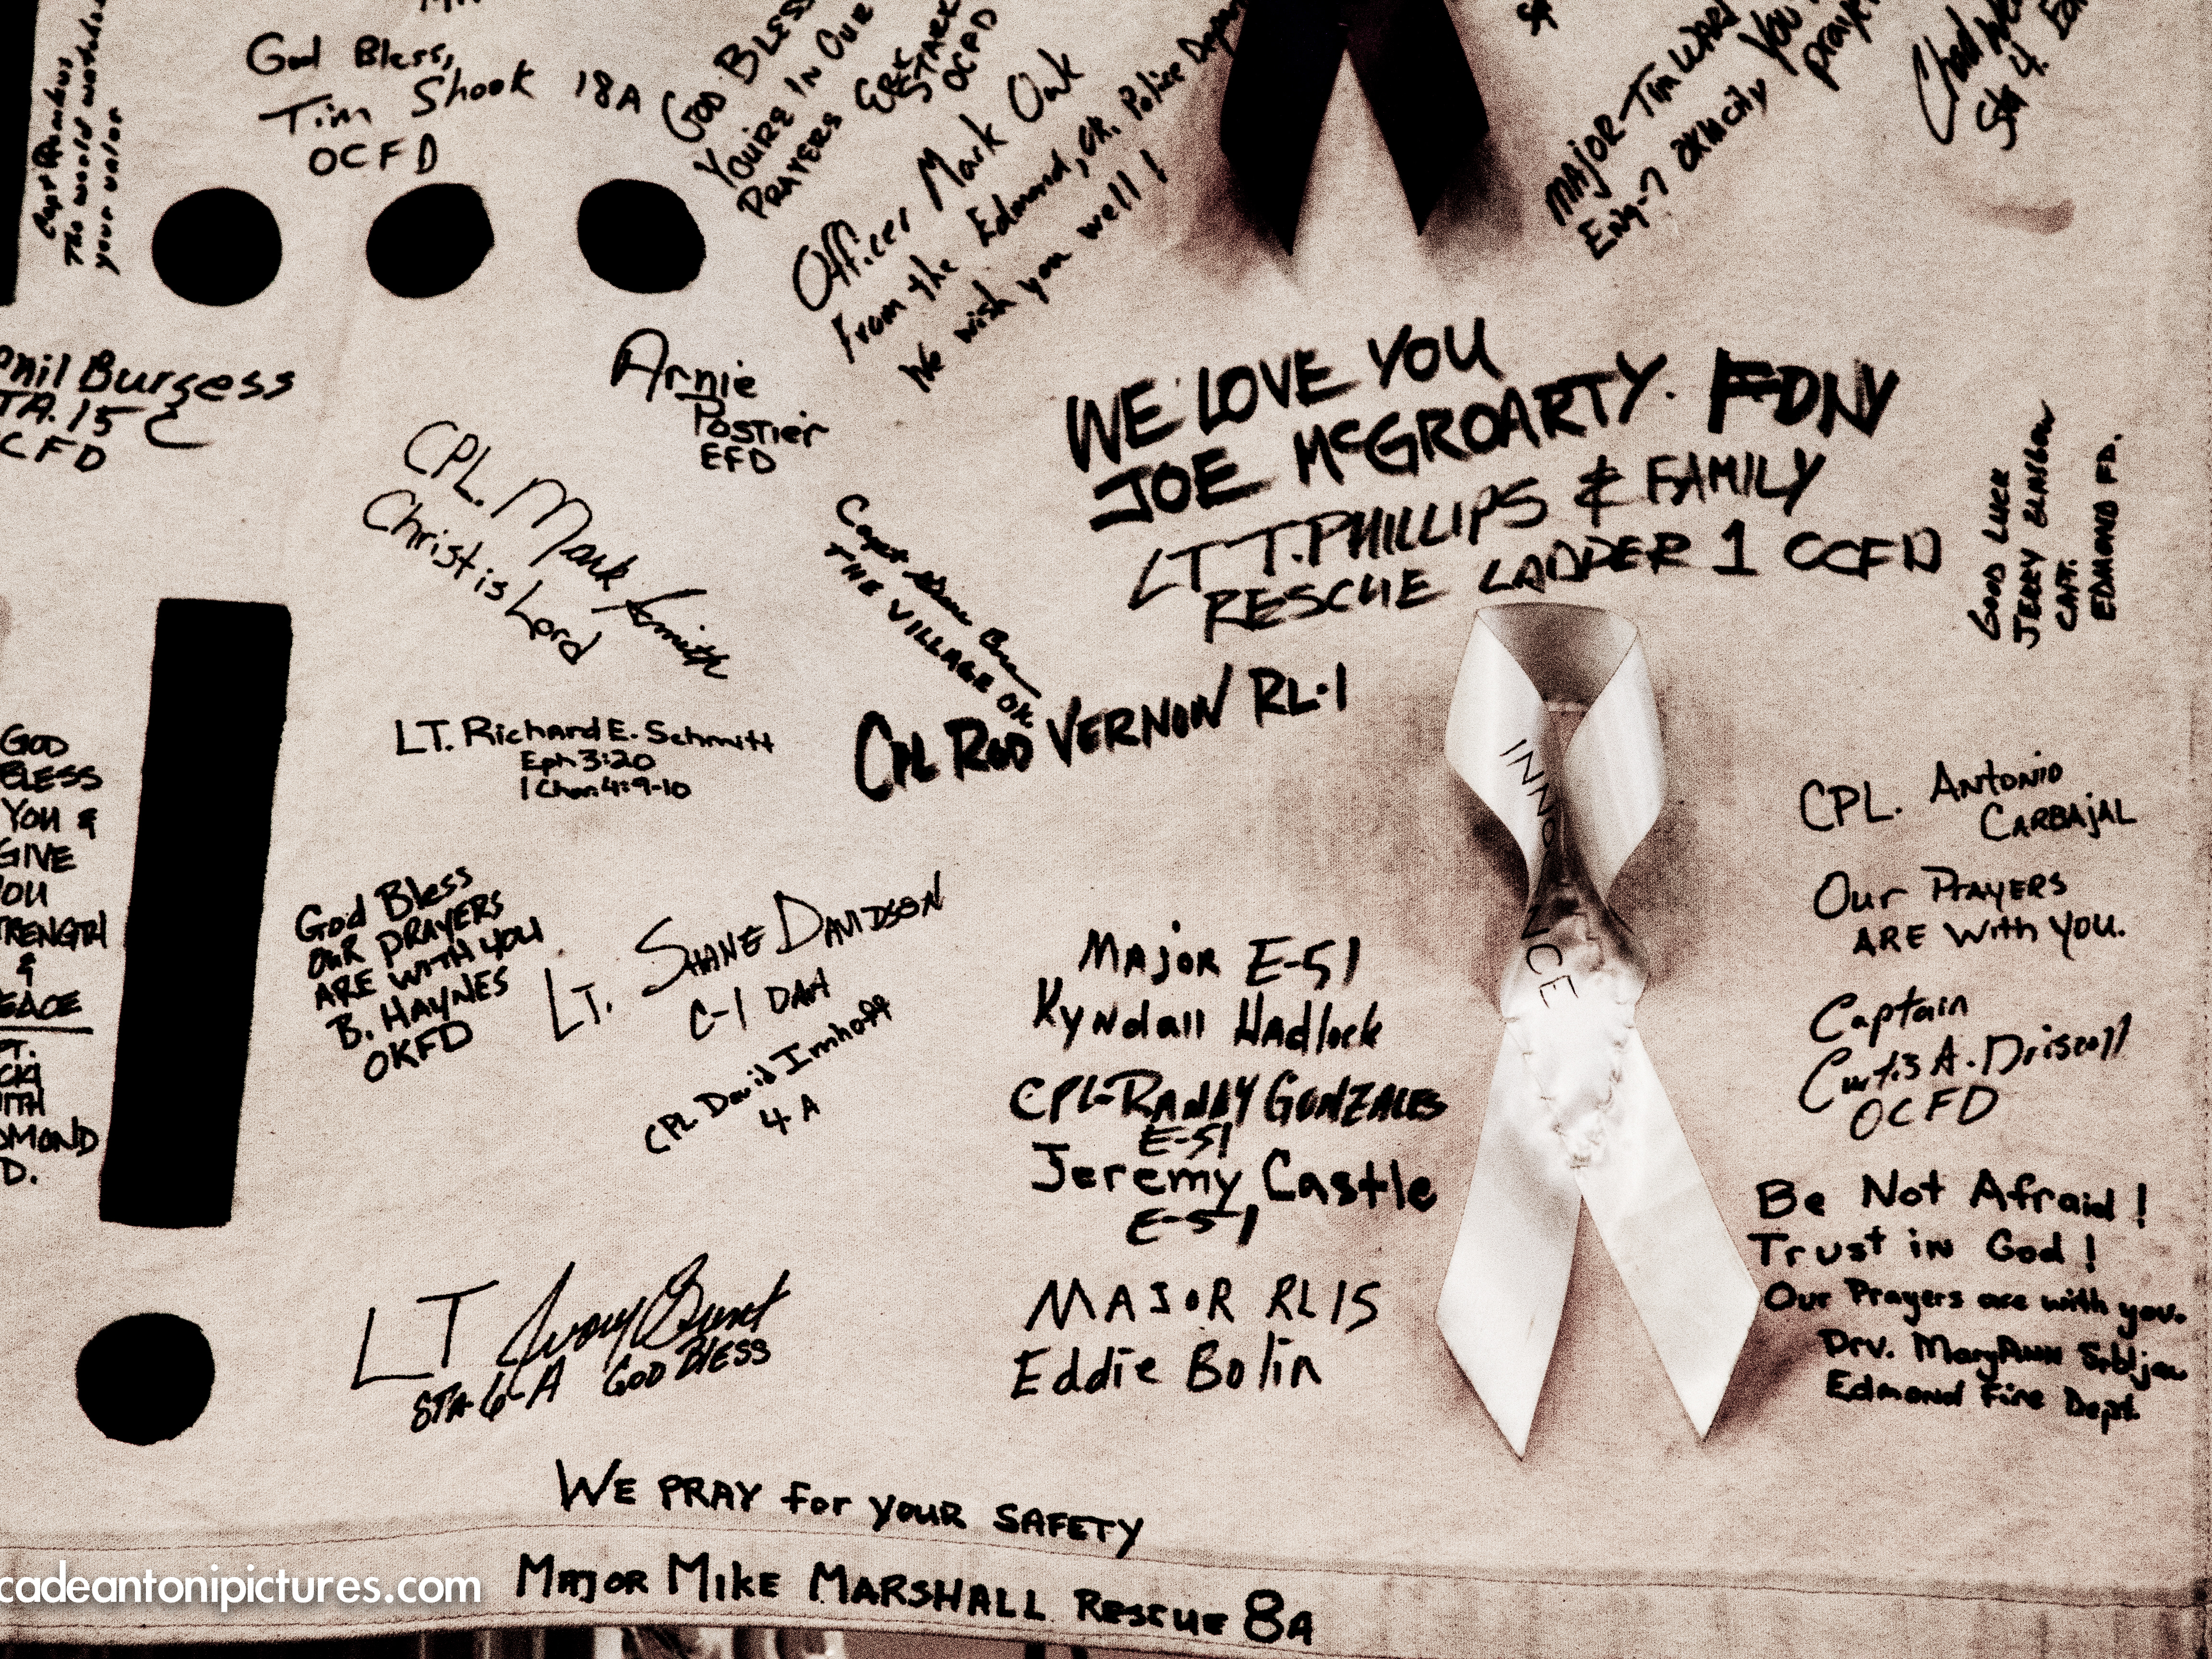 God Bless,
Tim Shook 18A
OCFD
The world watched
your valor
GOD BLESS
YOU'RE IN OUR
PRAYERS
STARK
OCPD
Officer Mark
From the Edmond, OK. Police
We wish you well!
MAJOR-TIM
Eng-7
YOU
Chad
Sta 4.
Phil Burgess
STA. 15 C
OCFD
Arnie
Postier
EFD
CPL. Mark Smith
Christ is Lord
Capt
THE VILLAGE OK
WE LOVE YOU
JOE McGROARTY. FDNY
LT T. PHILLIPS & FAMILY
RESCUE LADDER 1 OCFD
GOOD LUCK
JERRY
CAPT.
EDMOND FD.
LT. Richard E. Schmitt
Eph 3:20
1 Chon. 4:9-10
CPL ROD VERNON RL-1
INNOCENCE
CPL. ANTONIO
CARBAJAL
OUR PRAYERS
ARE With YOU.
GOD
BLESS
YOU &
GIVE
YOU
STRENGTH
&
PEACE
EDMOND
F.D.
God Bless
OUR PRAYERS
ARE WITH YOU
B. HAYNES
OKFD
LT. SHANE DAVIDSON
C-1 DAH
CPL David Imhoff
4 A
MAJOR E-51
Kyndall Hadlock
CPL-RANDY GONZALES
E-51
Jeremy Castle
E-51
Captain
Curtis A. Driscoll
OCFD
Be Not Afraid!
Trust in God!
Our Prayers are with you.
Drv. MaryAnn
Edmond Fire Dept.
LT
STA-6-A GOD BLESS
MAJOR RL 15
Eddie Bolin
WE PRAY for your SAFETY
Major MIKE MARSHALL RESCUE 8A
cadeantonipictures.com